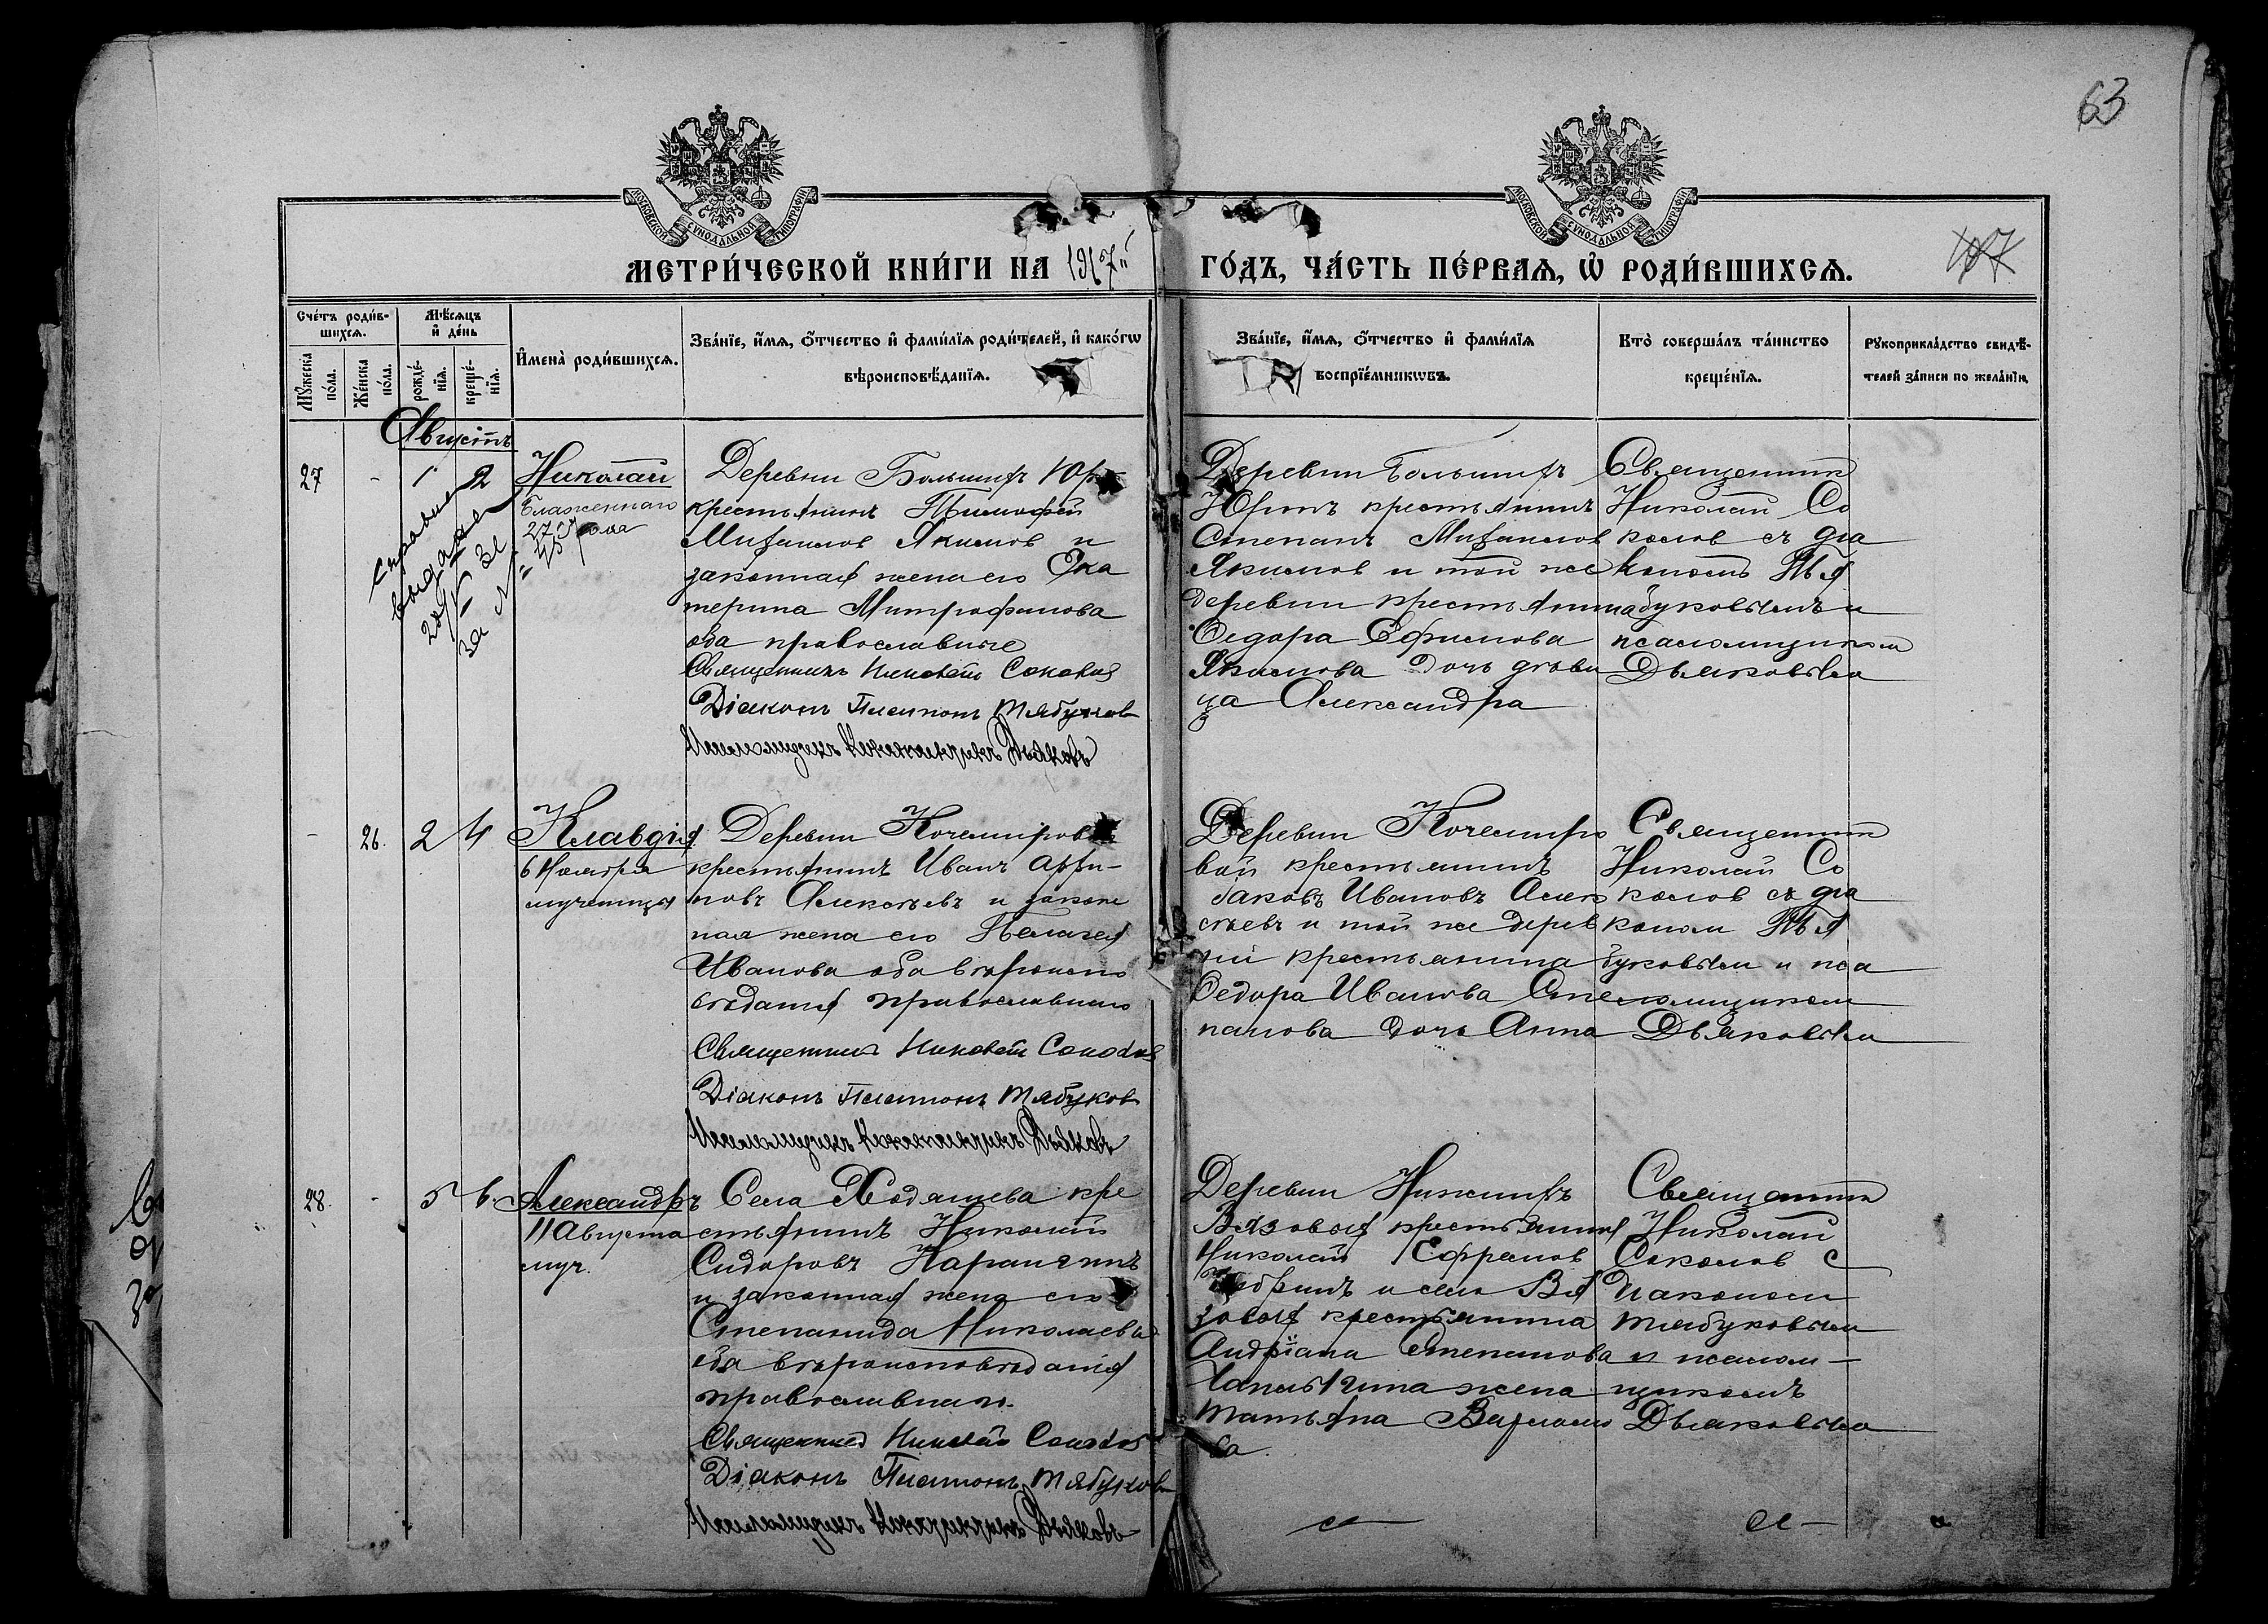 63
МОСКОВСКОЙ СУНОДАЛЬНОЙ ТИПОГРАФІИ
МОСКОВСКОЙ СУНОДАЛЬНОЙ ТИПОГРАФІИ
МЕТРИ́ЧЕСКОЙ КНИ́ГИ НА 1917й
ГО́ДЪ, ЧА́СТЬ ПЕ́РВАѦ, Ѡ҆ РОДИ́ВШИХСѦ.
107
Сче́тъ роди́в-
шихсѧ.
Мѣ́сѧцъ
и҆ де́нь
Мꙋ́жеска
по́ла.
Же́нска
по́ла.
рожде́-
нїѧ.
креще́-
нїѧ.
И҆мена̀ роди́вшихсѧ.
Зва́нїе, и҆́мѧ, ѻ҆́тчество и҆ фами́лїѧ роди́телей, и҆ како́гѡ
вѣроисповѣ́данїѧ.
Зва́нїе, и҆́мѧ, ѻ҆́тчество и҆ фами́лїѧ
воспрїе́мникѡвъ.
Кто̀ соверша́лъ та́инство
креще́нїѧ.
Рꙋкоприкла́дство свидѣ́-
телей за́писи по жела́нїю.
Августъ
27 - 1 2 Николай
Блаженнаго
27 Юля
выдана
за №
Деревни Большихъ
крестьянинъ Тимофей
Михаилов Якимов и
законная жена его Ека
терина Митрофанова
оба православные
Священникъ Николай Соколов
Діаконъ Платонъ Тябуков
Псаломщикъ Дьяковъ
Деревни Большихъ
Юртъ крестьянинъ
Степанъ Михаилов
Якимов и той же
деревни крестьянина
Федора Ефимова
Якимова дочь дѣви
ца Александра
Священник
Николай Со
колов съ диа
кономъ Тя
буковымъ и
псаломщиком
Дьяковым
- 26. 2 4 Клавдія
6 Ноября
мученицы
Деревни Кочемировой
крестьянинъ Иванъ
Алексѣевъ и закон
ная жена его Пелагея
Иванова оба вѣроиспо
вѣданія православнаго
Священникъ Николай Соколов
Діаконъ Платонъ Тябуков
Псаломщикъ Дьяковъ
Деревни Кочемиро
вой крестьянинъ
Яковъ Ивановъ Алек
сѣевъ и той же дерев
ни крестьянина
Федора Иванова Сте
панова дочь Анна
Священник
Николай Со
колов съ диа
коном Тя
буковым и пса
ломщиком
Дьяковым
28. - 5 6. Александръ
11 Августа
муч.
Села Ходяшева кре
стьянинъ Николай
Сидоровъ
и законная жена его
Степанида Николаева
оба вѣроисповѣданія
православнаго.
Священник Николай Соколов
Діаконъ Платонъ Тябуков
Псаломщикъ Дьяковъ
Деревни Нижнихъ
Вязовыя крестьянинъ
Николай Ефремов
и села Вя
зовыя крестьянина
Андріана Степанова
жена
Татьяна Варламо
ва
Священник
Николай
Соколов с
Диаконом
Тябуковым
и псалом-
щикомъ
Дьяковым